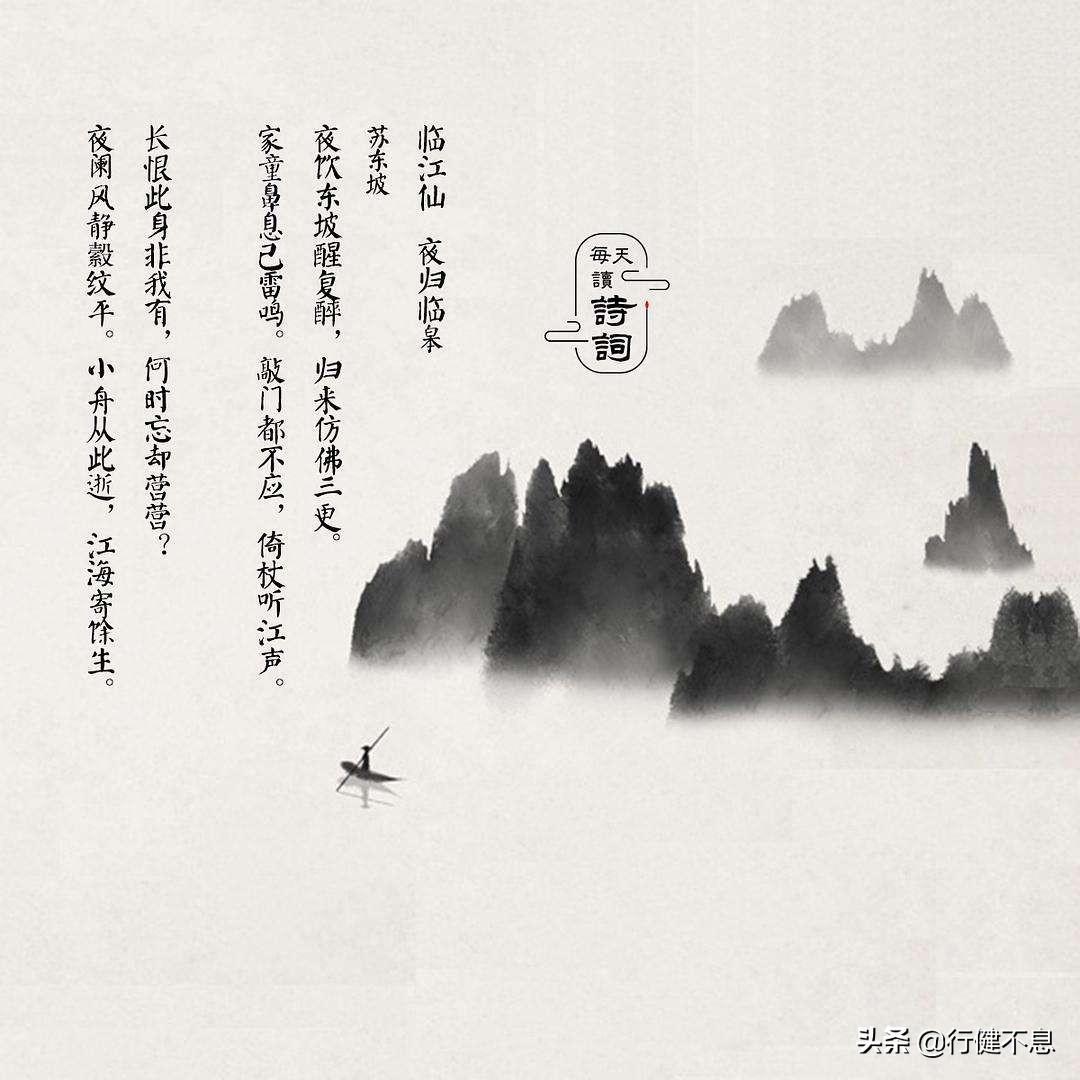 临江仙 夜归临皋
苏东坡
夜饮东坡醒复醉，归来仿佛三更。
家童鼻息己雷鸣。敲门都不应，倚杖听江声。
长恨此身非我有，何时忘却营营？
夜阑风静縠纹平。小舟从此逝，江海寄馀生。
每天
讀
詩
詞
头条 @行健不息